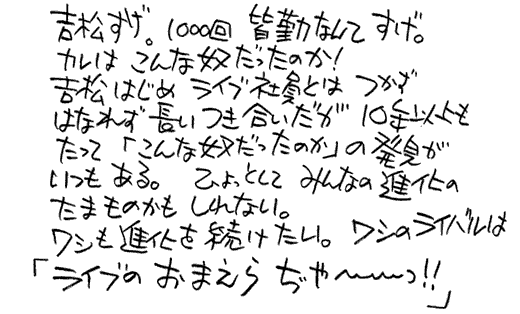 吉松すげ。1000回 皆勤なんて すげ。
カレは こんな奴だったのか!
吉松はじめ ライブ社員とは つかず
はなれず 長い つき合いだが 10年以上も
たって「こんな奴だったのか」の 発見が
いつも ある。 ひょっとして みんなの 進化の
たまものかも しれない。
ワシも 進化を 続けたい。 ワシのライバルは
「ライブの おまえら ぢゃ〜〜〜っ!!」